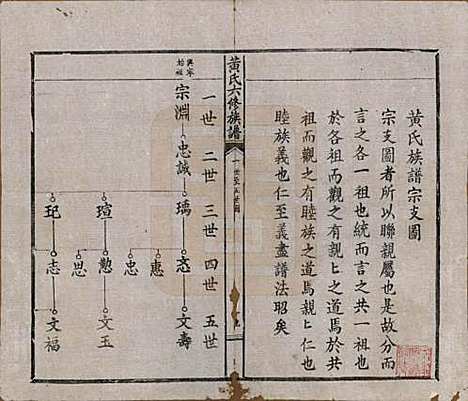 黄氏族譜宗支圖
宗支圖者所以聯親屬也是故分而
言之各一祖也統而言之共一祖也
於各祖而觀之有親親之道焉於共
祖而觀之有睦族之道焉親親仁也
睦族義也仁至義盡譜法昭矣
黄氏六修族譜
一世至五世圖
一世 二世 三世 四世 五世
興寧始祖
宗淵 忠誠 瑀 文壽
惠
忠
瑄 懃 文玉
思
玘 志 文福